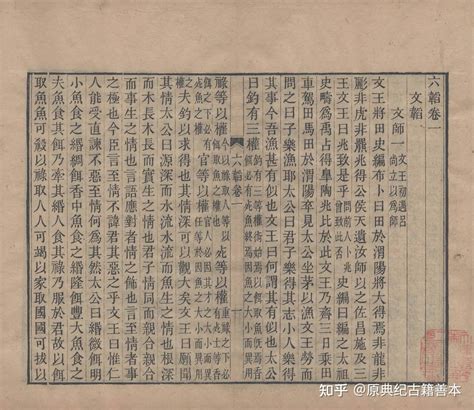 六韜卷一
文韜
文師一 文王初遇呂尚立以為師
文王將田史編布卜曰田於渭陽將大得焉非龍非
彲非虎非羆兆得公侯天遺汝師以之佐昌施及三
王文王曰兆致是乎 史編曰編之太祖
史疇為禹占得皋陶兆比於此文王乃齋三日乘田
車駕田馬田於渭陽卒見太公坐茅以漁文王勞而
問之曰子樂漁耶太公曰君子樂得其志小人樂得
其事今吾漁甚有似也文王曰何謂其有似也太公
曰釣有三權
六韜卷一
祿等以權
官等以權
夫釣以求得也其情深可以觀大矣文王曰願聞
其情太公曰源深而水流水流而魚生之情也根深
而木長木長而實生之情也君子情同而親合親合
而事生之情也言語應對者情之飾也言至情者事
之極也今臣言至情不諱君其惡之乎文王曰惟仁
人能受直諫不惡至情何為其然太公曰緡微餌明
小魚食之緡調餌香中魚食之緡隆餌豐大魚食之
夫魚食其餌乃牽於緡人食其祿乃服於君故以餌
取魚魚可殺以祿取人人可竭以家取國國可拔以
知乎 @原典纪古籍善本